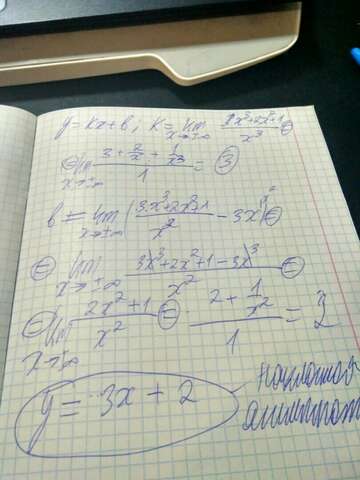 y = kx + b; k = lim x→±∞ (3x³+2x²+1)/x³ =
= lim x→±∞ (3 + 2/x + 1/x³)/1 = 3
b = lim x→±∞ ((3x³+2x²+1)/x² - 3x) =
= lim x→±∞ (3x³+2x²+1-3x³)/x² =
= lim x→±∞ (2x²+1)/x² = (2 + 1/x²)/1 = 2
y = 3x + 2
наклонная
асимптот